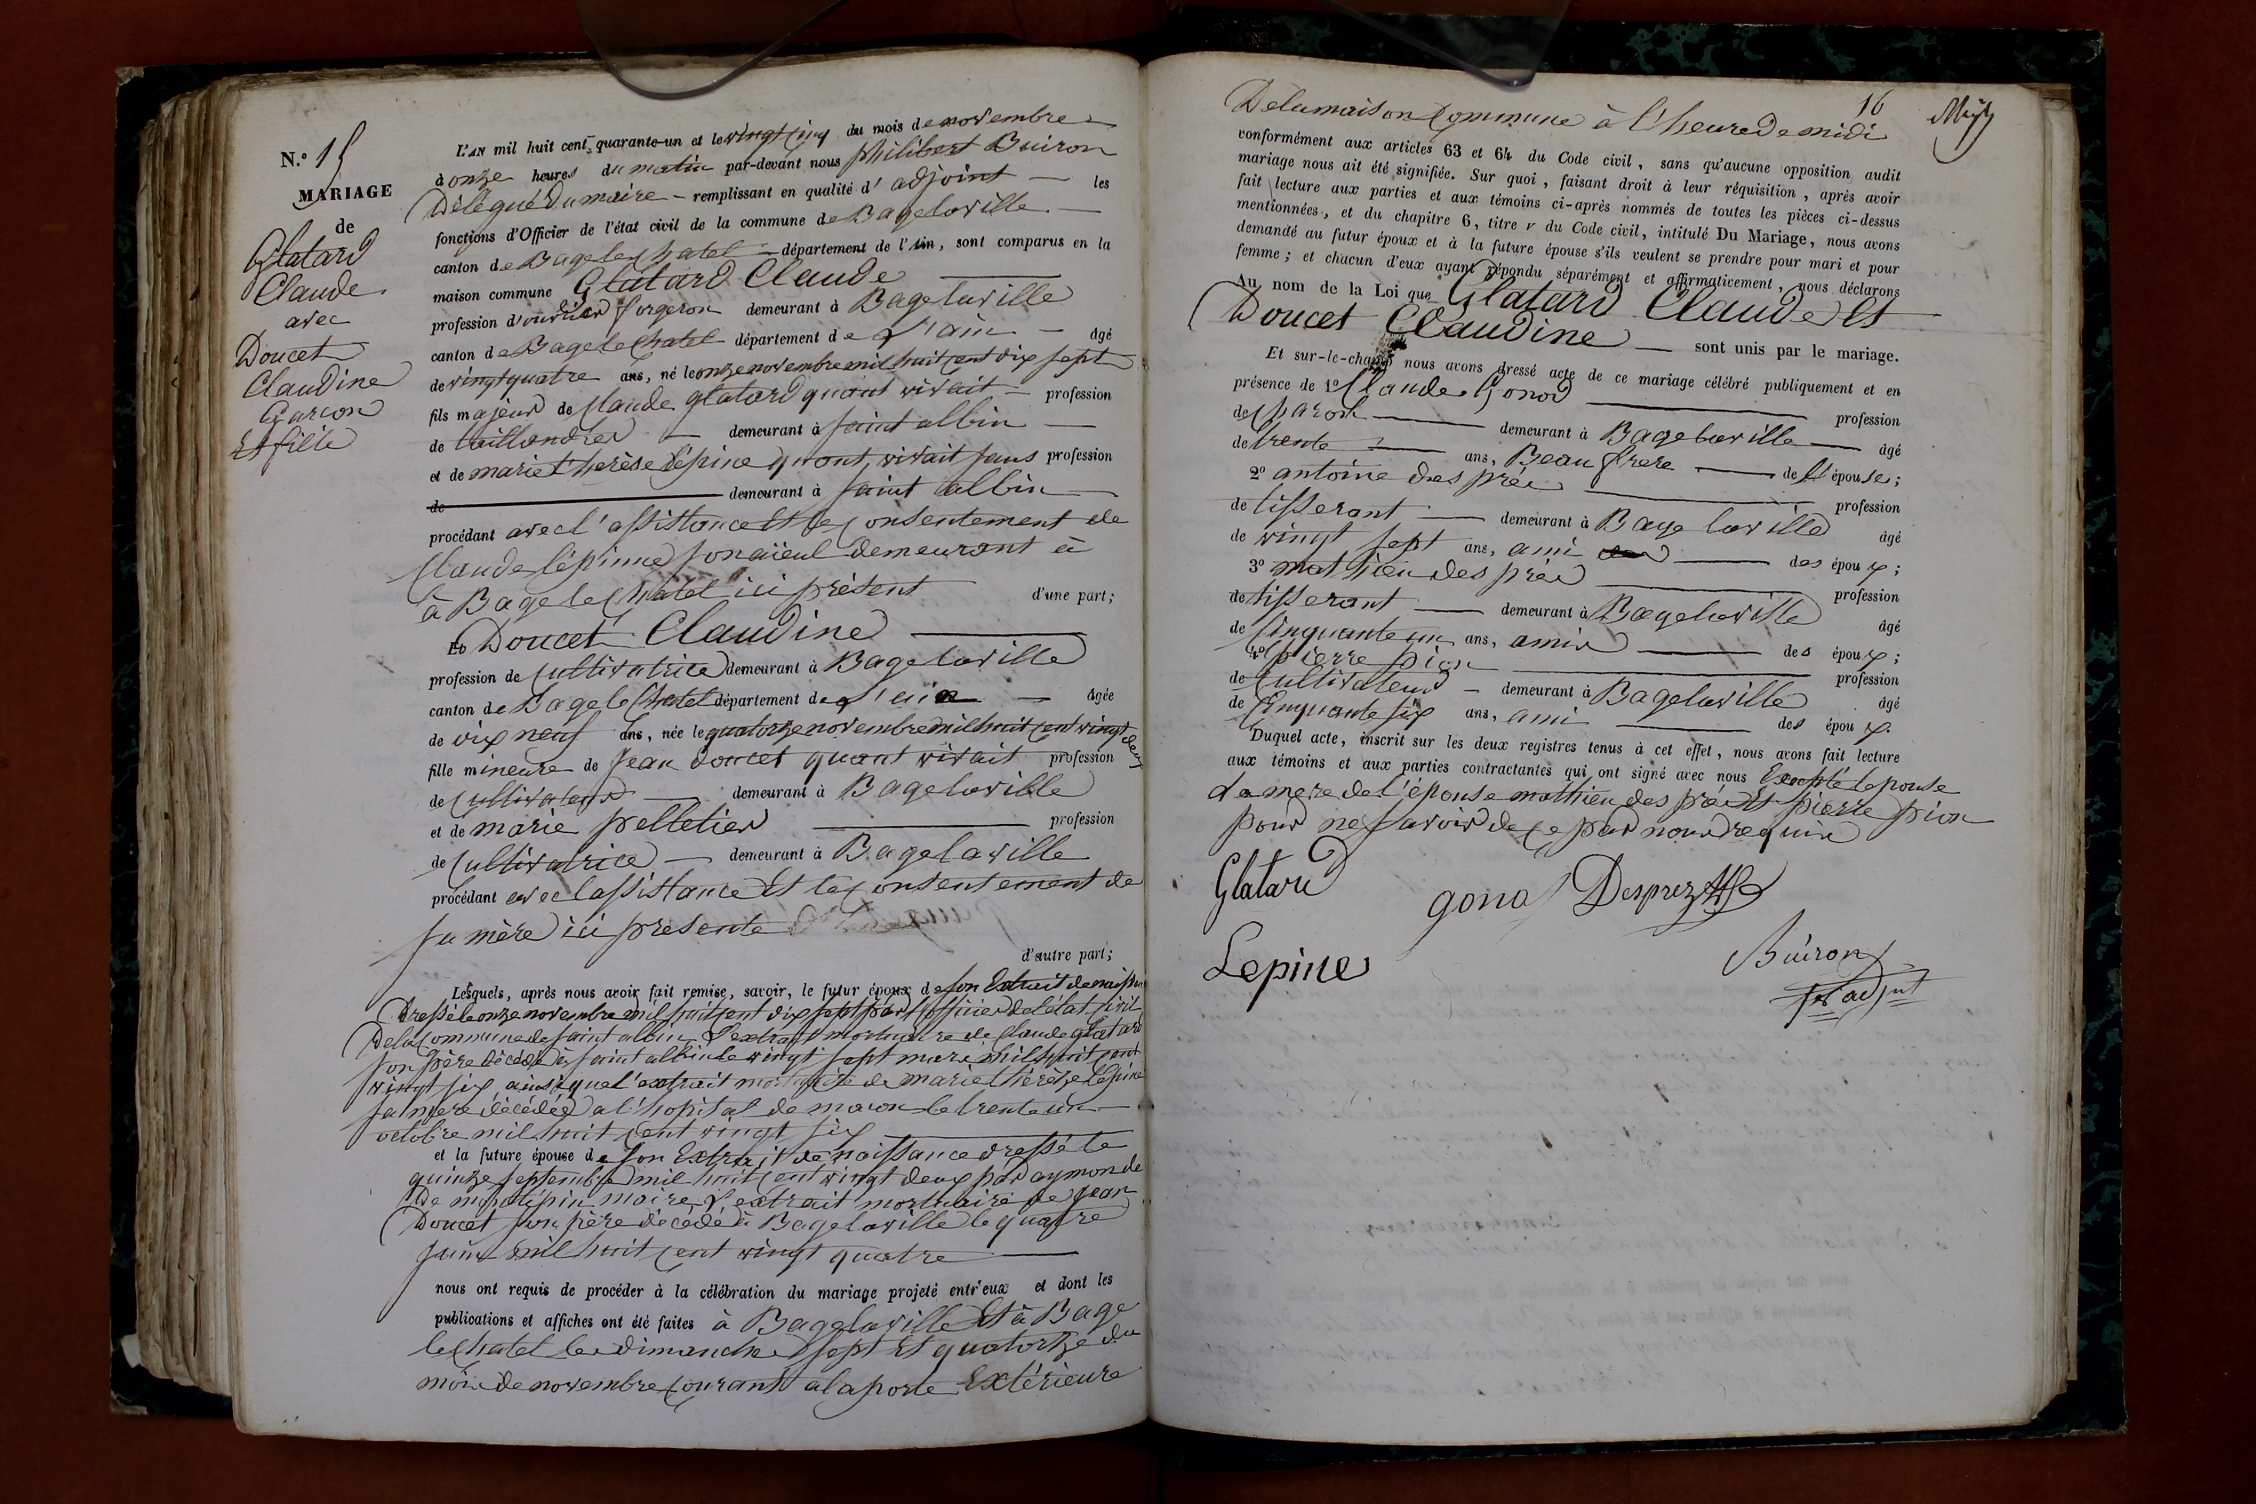 N.º 15
MARIAGE
de
Glatard
Claude
avec
Doucet
Claudine
Garcon
Et fille
L'AN mil huit cent quarante-un et le vingt cinq du mois de novembre
à onze heures du matin par-devant nous philibert Buiron
Délégué Du maire - remplissant en qualité d'adjoint — les
fonctions d'Officier de l'état civil de la commune de Bagelaville —
canton de Bage le Chatel — département de l'Ain, sont comparus en la
maison commune Glatard Claude
profession d'ouvrier forgeron demeurant à Bagelaville
canton de Bage le Chatel département de l'ain — âgé
de vingt quatre ans, né le onze novembre mil huit cent dix sept
fils majeur de Claude glatard quant vivait — profession
de taillandier — demeurant à saint albin —
et de marie therèse lépine quant vivait sans profession
de — demeurant à saint albin —
procédant avec l'assistance Et le Consentement de
Claude lépinne son aïeul demeurant à
à Bage le Chatel ici présent d'une part;
Et Doucet Claudine
profession de Cultivatrice demeurant à Bagelaville
canton de Bage le Chatel département de l'ain — âgée
de dix neuf ans, née le quatorze novembre mil huit cent vingt deux
fille mineure de Jean doucet quant vivait profession
de Cultivateur — demeurant à Bagelaville
et de marie pelletier — profession
de Cultivatrice — demeurant à Bagelaville
procédant avec lassistance Et le Consentement de
sa mère ici presente
d'autre part;
Lesquels, après nous avoir fait remise, savoir, le futur époux de son Extrait de naissance
Dressé le onze novembre mil huit cent dix sept par l'officier de l'état civil
De la Commune de saint albin L'extrait mortuaire de Claude glatard
son père décédé à saint albin le vingt sept mars mil huit cent
vingt six ainsi que l'extrait mortuaire de marie thérèze lépine
sa mere décédée a l'hopital de macon le trente un
octobre mil huit cent vingt six
et la future épouse de son Extrait de naissance dressé le
quinze septembre mil huit cent vingt deux par aymon de
De montépin maire L'extrait mortuaire de jean
Doucet son père décédé à Bagelaville le quatre
juin mil huit cent vingt quatre —
nous ont requis de procéder à la célébration du mariage projeté entr'eux et dont les
publications et affiches ont été faites à Bagelaville Et à Bage
le Chatel les dimanches sept Et quatorze du
mois de novembre Courant a la porte Extérieure
16
De la maison Commune à l'heure De midi
conformément aux articles 63 et 64 du Code civil, sans qu'aucune opposition audit
mariage nous ait été signifiée. Sur quoi, faisant droit à leur réquisition, après avoir
fait lecture aux parties et aux témoins ci-après nommés de toutes les pièces ci-dessus
mentionnées, et du chapitre 6, titre v du Code civil, intitulé Du Mariage, nous avons
demandé au futur époux et à la future épouse s'ils veulent se prendre pour mari et pour
femme; et chacun d'eux ayant répondu séparément et affirmativement, nous déclarons
Au nom de la Loi que Glatard Claude Et
Doucet Claudine — sont unis par le mariage.
Et sur-le-champ nous avons dressé acte de ce mariage célébré publiquement et en
présence de 1º Claude Gonod — profession
de Charon — demeurant à Bagelaville — âgé
de trente — ans, Beau frere — de l'épouse;
2º antoine des prés — profession
de tisserant — demeurant à Bage laville âgé
de vingt sept ans, ami — des époux;
3º mathieu des prés — profession
de tisserant — demeurant à Bagelaville âgé
de Cinquante un ans, amis — des époux;
4º pierre pion — profession
de Cultivateur — demeurant à Bagelaville âgé
de Cinquante six ans, ami — des époux.
Duquel acte, inscrit sur les deux registres tenus à cet effet, nous avons fait lecture
aux témoins et aux parties contractantes qui ont signé avec nous Excepté lepouse
la mere de l'épouse mathieu des prés Et pierre pion
pour ne savoir de Ce par nous requis
Glatard
gonod Desprez
Lepine
Buiron
adjnt